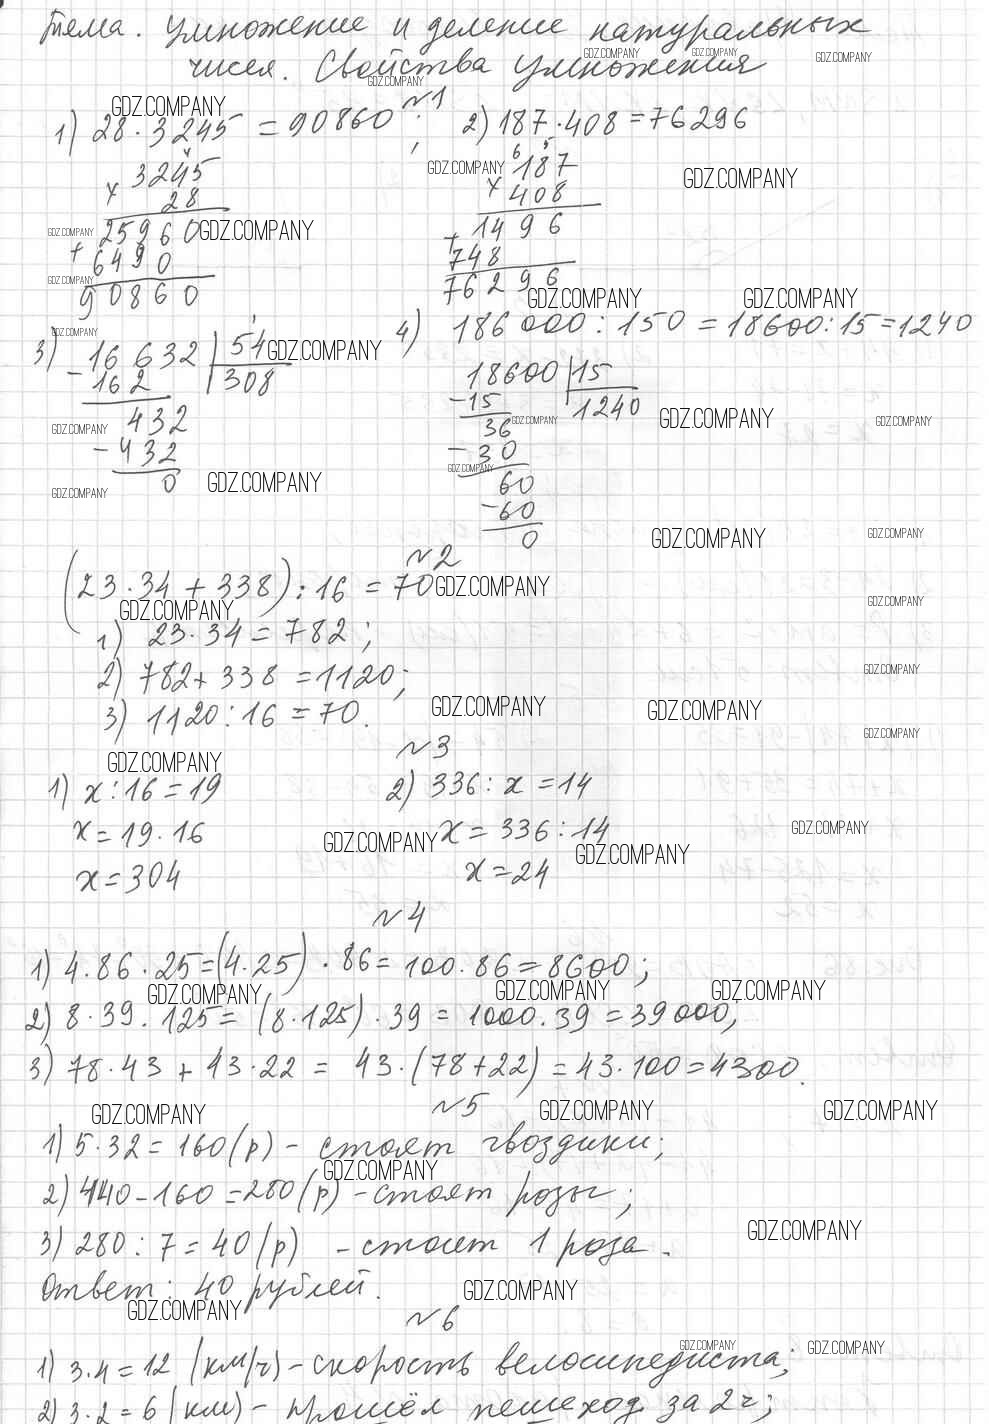 Тема. Умножение и деление натуральных
чисел. Свойства умножения
№1
1) 28 · 3245 = 90860 ; 2) 187 · 408 = 76296
3245
× 28
25960
+ 6490
90860
187
× 408
1496
+ 748
76296
3) 16632 | 54
- 162 | 308
432
- 432
0
4) 186 000 : 150 = 18600 : 15 = 1240
18600 | 15
- 15 | 1240
36
- 30
60
- 60
0
№2
(23 · 34 + 338) : 16 = 70
1) 23 · 34 = 782 ;
2) 782 + 338 = 1120 ;
3) 1120 : 16 = 70 .
№3
1) x : 16 = 19 2) 336 : x = 14
x = 19 · 16 x = 336 : 14
x = 304 x = 24
№4
1) 4 · 86 · 25 = (4 · 25) · 86 = 100 · 86 = 8600 ;
2) 8 · 39 · 125 = (8 · 125) · 39 = 1000 · 39 = 39 000 ;
3) 78 · 43 + 43 · 22 = 43 · (78 + 22) = 43 · 100 = 4300 .
№5
1) 5 · 32 = 160 (р) - стоят гвоздики ;
2) 440 - 160 = 280 (р) - стоят розы ;
3) 280 : 7 = 40 (р) - стоит 1 роза .
Ответ : 40 рублей .
№6
1) 3 · 4 = 12 (км/ч) - скорость велосипедиста ;
2) 3 · 2 = 6 (км) - прошёл пешеход за 2ч ;
GDZ.COMPANY